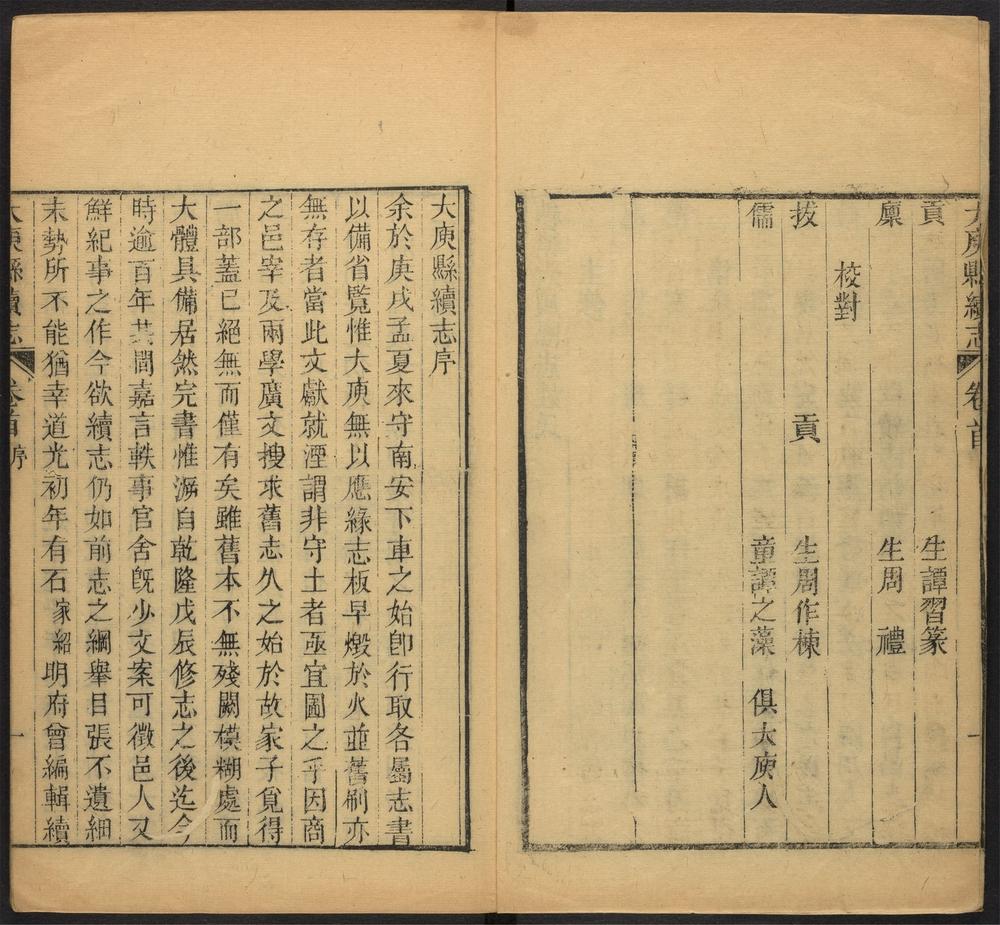 大庾縣續志 卷首 一
貢 生譚習篆
廩 生周 禮
校對
拔 貢 生周作棟
儒 童譚之藻 俱大庾人
大庾縣續志序
余於庚戌孟夏來守南安下車之始卽行取各屬志書
以備省覽惟大庾無以應緣志板早燬於火並舊刷亦
無存者當此文獻就湮謂非守土者亟宜圖之乎因商
之邑宰及兩學廣文搜求舊志久之始於故家子覓得
一部蓋已絕無而僅有矣雖舊本不無殘闕模糊處而
大體具備居然完書惟溯自乾隆戊辰修志之後迄今
時逾百年其間嘉言軼事官舍旣少文案可徵邑人又
鮮紀事之作今欲續志仍如前志之綱舉目張不遺細
未勢所不能猶幸道光初年有石家紹明府曾編輯續
大庾縣續志 卷首 序 一